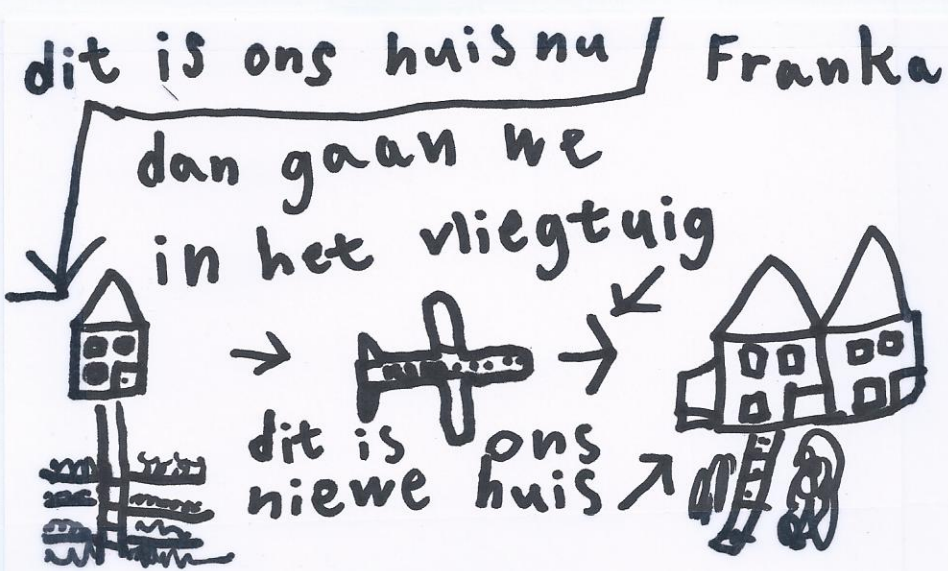 dit is ons huis nu
Franka
dan gaan we
in het vliegtuig
dit is ons
niewe huis